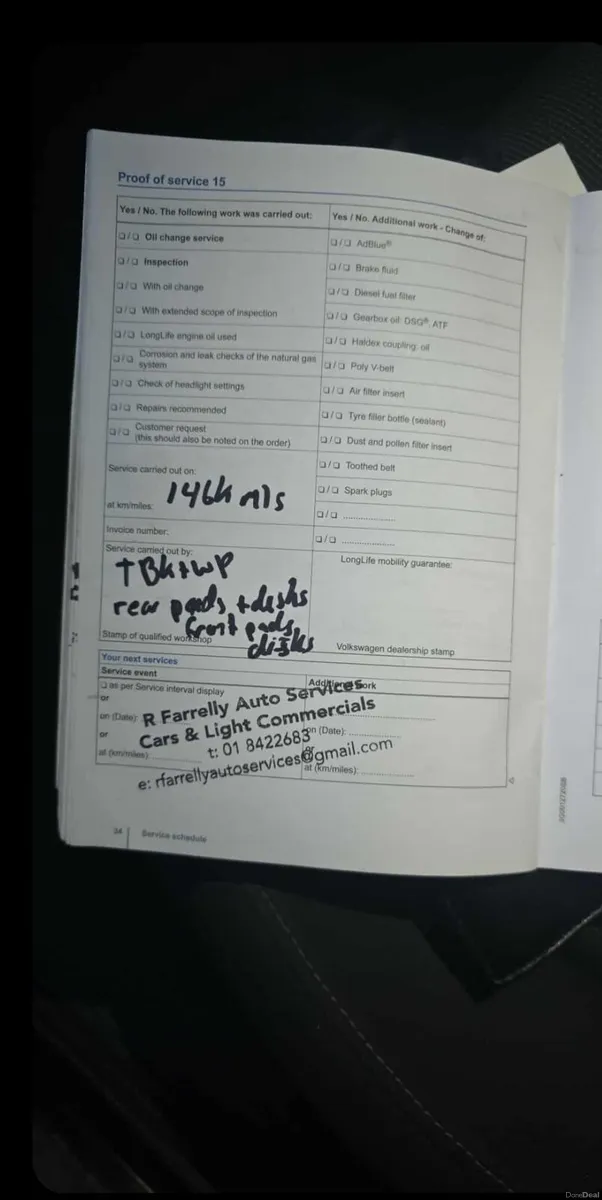 Proof of service 15
Yes / No. The following work was carried out:
❑/❑ Oil change service
❑/❑ Inspection
❑/❑ With oil change
❑/❑ With extended scope of inspection
❑/❑ LongLife engine oil used
❑/❑ Corrosion and leak checks of the natural gas
system
❑/❑ Check of headlight settings
❑/❑ Repairs recommended
❑/❑ Customer request
(this should also be noted on the order)
Service carried out on:
at km/miles: 146k mls
Invoice number:
Service carried out by:
TBk+WP
rear pads + disks
front pads
disks
Stamp of qualified workshop
Yes / No. Additional work - Change of:
❑/❑ AdBlue®
❑/❑ Brake fluid
❑/❑ Diesel fuel filter
❑/❑ Gearbox oil: DSG®, ATF
❑/❑ Haldex coupling: oil
❑/❑ Poly V-belt
❑/❑ Air filter insert
❑/❑ Tyre filler bottle (sealant)
❑/❑ Dust and pollen filter insert
❑/❑ Toothed belt
❑/❑ Spark plugs
❑/❑ ....................
❑/❑ ....................
LongLife mobility guarantee:
Volkswagen dealership stamp
Your next services
Service event
❑ as per Service interval display
or
on (Date):
or
at (km/miles):
Additional work
on (Date): ....................
or
at (km/miles): ....................
R Farrelly Auto Services
Cars & Light Commercials
t: 01 8422683
e: rfarrellyautoservices@gmail.com
34 Service schedule
DoneDeal